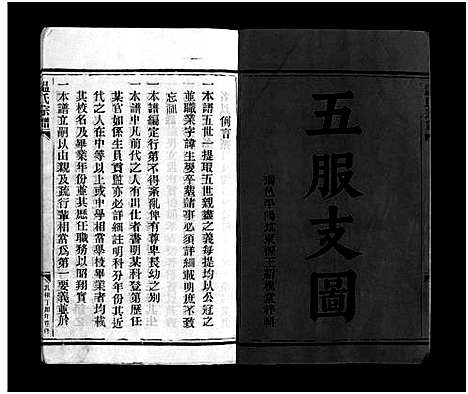 五服支圖
例言
一本譜五世一提取五世親盡之義每提均以公冠之
並職業字諱生娶卒葬諸事必須詳載明庶不致
忘祖
一本譜編定行第不得紊亂俾有尊卑長幼之別
一本譜中凡前代之人有出仕者書明某科登第歷任
某官如係生員貢監亦必詳細註明科分年份其近
代之人在中等以上或中學相當學校畢業者均載
其校名及畢業年份並其歷任職務以昭翔實
一本譜立嗣以由親及疏行輩相當爲第一要義並於
溫氏宗譜